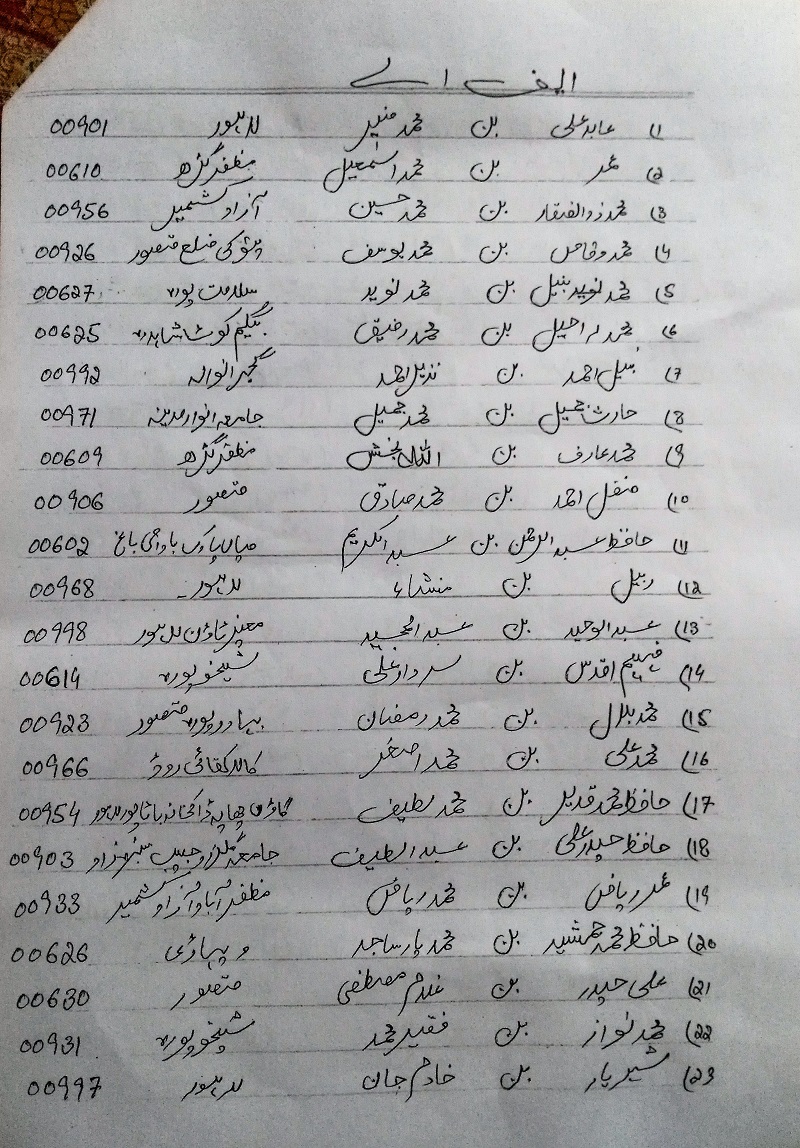 ایف اے
(1 عابد علی بن محمد منیر لاہور 00901
(2 عمر بن محمد اسمعیل مظفر گڑھ 00610
(3 محمد ذوالفقار بن محمد حسین آزاد کشمیر 00956
(4 محمد وقاص بن محمد یوسف پتوکی ضلع قصور 00926
(5 محمد نوید نبیل بن محمد نوید سلامت پورہ 00627
(6 محمد راحیل بن محمد رفیق بیگم کوٹ شاہدرہ 00625
(7 نبیل احمد بن نذیر احمد گجرانوالہ 00992
(8 حارث جمیل بن محمد جمیل جامعہ انوار مدینہ 00971
(9 محمد عارف بن اللہ بخش مظفر گڑھ 00609
(10 احمد بن محمد صادق قصور 00906
(11 حافظ عبد الرحمن بن عبد الکریم میاں پارک باغ 00602
(12 بن منشاء لاہور 00968
(13 عبد الوحید بن عبد المجید ٹاؤن لاہور 00998
(14 فہیم اقدس بن سردار علی شیخوپورہ 00614
(15 محمد بلال بن محمد رمضان بہادر پورہ قصور 00923
(16 محمد علی بن محمد اصغر روڈ 00966
(17 حافظ محمد قدیر بن محمد لطیف گاؤں ڈاکخانہ باٹا پور لاہور 00954
(18 حافظ حیدر علی بن عبد الطیف جامعہ 00903
(19 عمر ریاض بن محمد ریاض مظفر آباد آزاد کشمیر 00933
(20 حافظ محمد جمشید بن محمد یار ساجد وہاڑی 00626
(21 علی حیدر بن غلام مصطفی قصور 00630
(22 محمد نواز بن فقیر محمد شیخوپورہ 00931
(23 شہریار بن خادم جان لاہور 00997